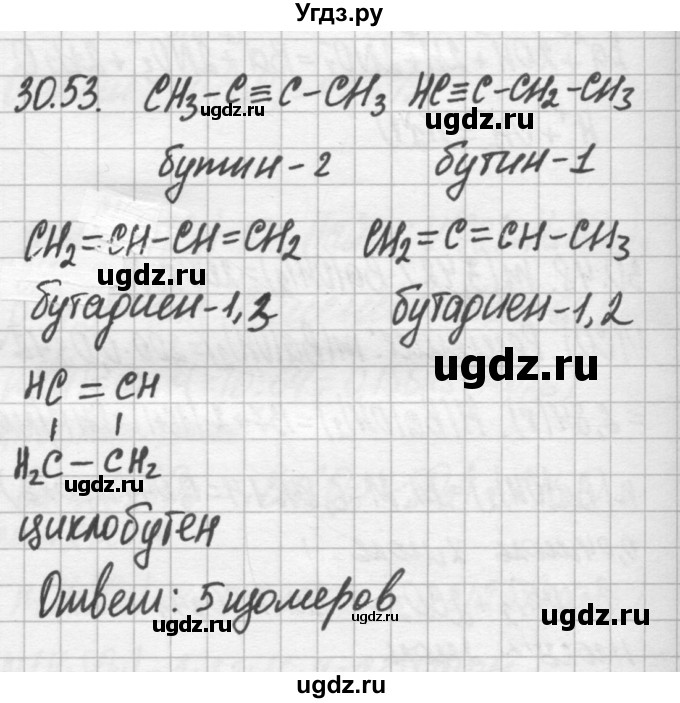 Угдз.ру
30.53. CH3-C≡C-CH3 HC≡C-CH2-CH3
ugdz.ru ugdz.ru
бутин-2 бутин-1
CH2=CH-CH=CH2 CH2=C=CH-CH3
ugdz.ru ugdz.ru
бутадиен-1,3 бутадиен-1,2
ugdz.ru
HC=CH
H2C-CH2
ugdz.ru
циклобутен
Ответ: 5 изомеров
ugdz.ru ugdz.ru ugdz.ru
ugdz.ru